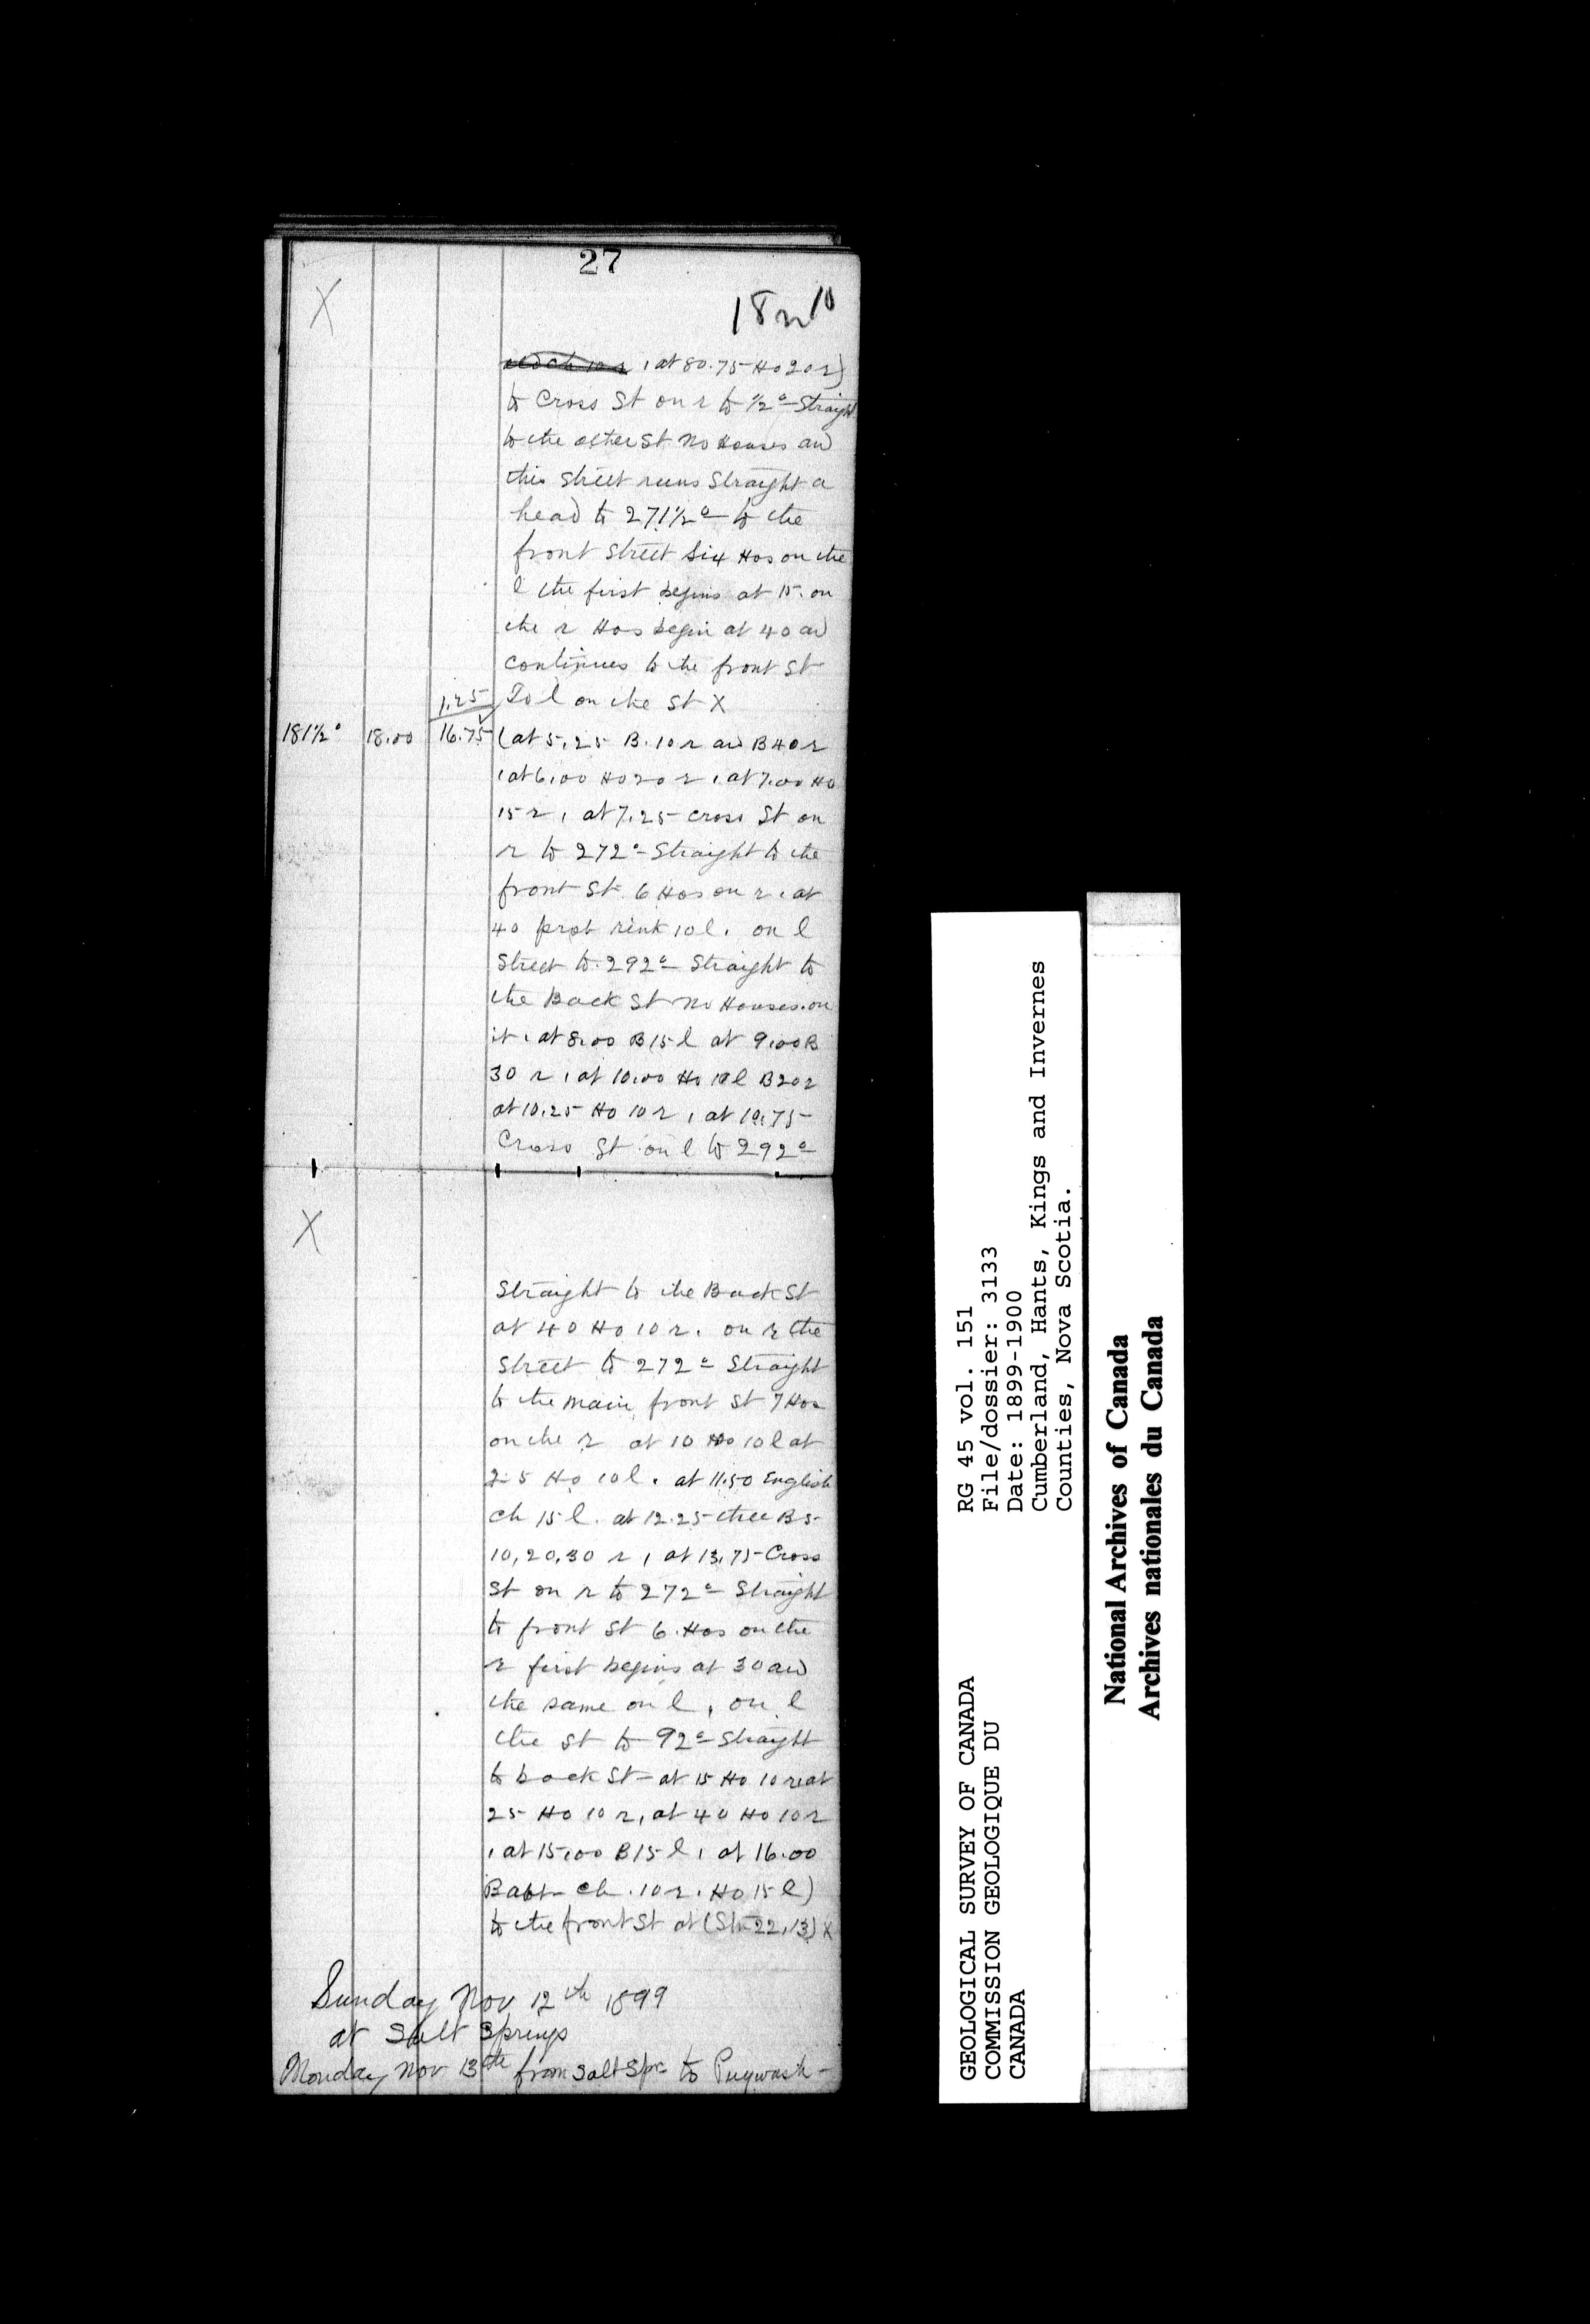 27
X
, at 80.75 Ho 20 r)
to Cross St on r to ½° Straight
to the other St no Houses and
this Street runs Straight a
head to 271½° to the
front Street Six Hos on the
l the first begins at 15. on
the r Hos begin at 40 and
continues to the front St
1.25 To l on the St X
181½° 18.00 16.75 (at 5.25 B. 10 r and B 40 r
, at 6.00 Ho 20 r , at 7.00 Ho
15 r , at 7.25 cross St on
r to 272° Straight to the
front St 6 Hos on r , at
40 rink 10 l. on l
Street to 292° Straight to
the Back St no Houses on
it , at 8.00 B 15 l at 9.00 B
30 r , at 10.00 Ho 10 l B 20 r
at 10.25 Ho 10 r , at 10.75
Cross St on l to 292°
X
Straight to the Back St
at 40 Ho 10 r. on r the
Street to 272° Straight
to the main front St 7 Hos
on the r at 10 Ho 10 l at
25 Ho 10 l. at 11.50 English
Ch 15 l. at 12.25 three Bs
10, 20, 30 r , at 13.75 Cross
St on r to 272° Straight
to front St 6 Hos on the
r first begins at 30 and
the same on l , on l
the St to 92° Straight
to back St at 15 Ho 10 r at
25 Ho 10 r, at 40 Ho 10 r
, at 15.00 B 15 l , at 16.00
Bapt Ch . 10 r . Ho 15 l)
to the front St at (Stn 22, 13) X
Sunday Nov 12th 1899
at Salt Springs
Monday Nov 13th from Salt Spr to Pugwash
GEOLOGICAL SURVEY OF CANADA
COMMISSION GEOLOGIQUE DU
CANADA
RG 45 vol. 151
File/dossier: 3133
Date: 1899-1900
Cumberland, Hants, Kings and Invernes
Counties, Nova Scotia.
National Archives of Canada
Archives nationales du Canada